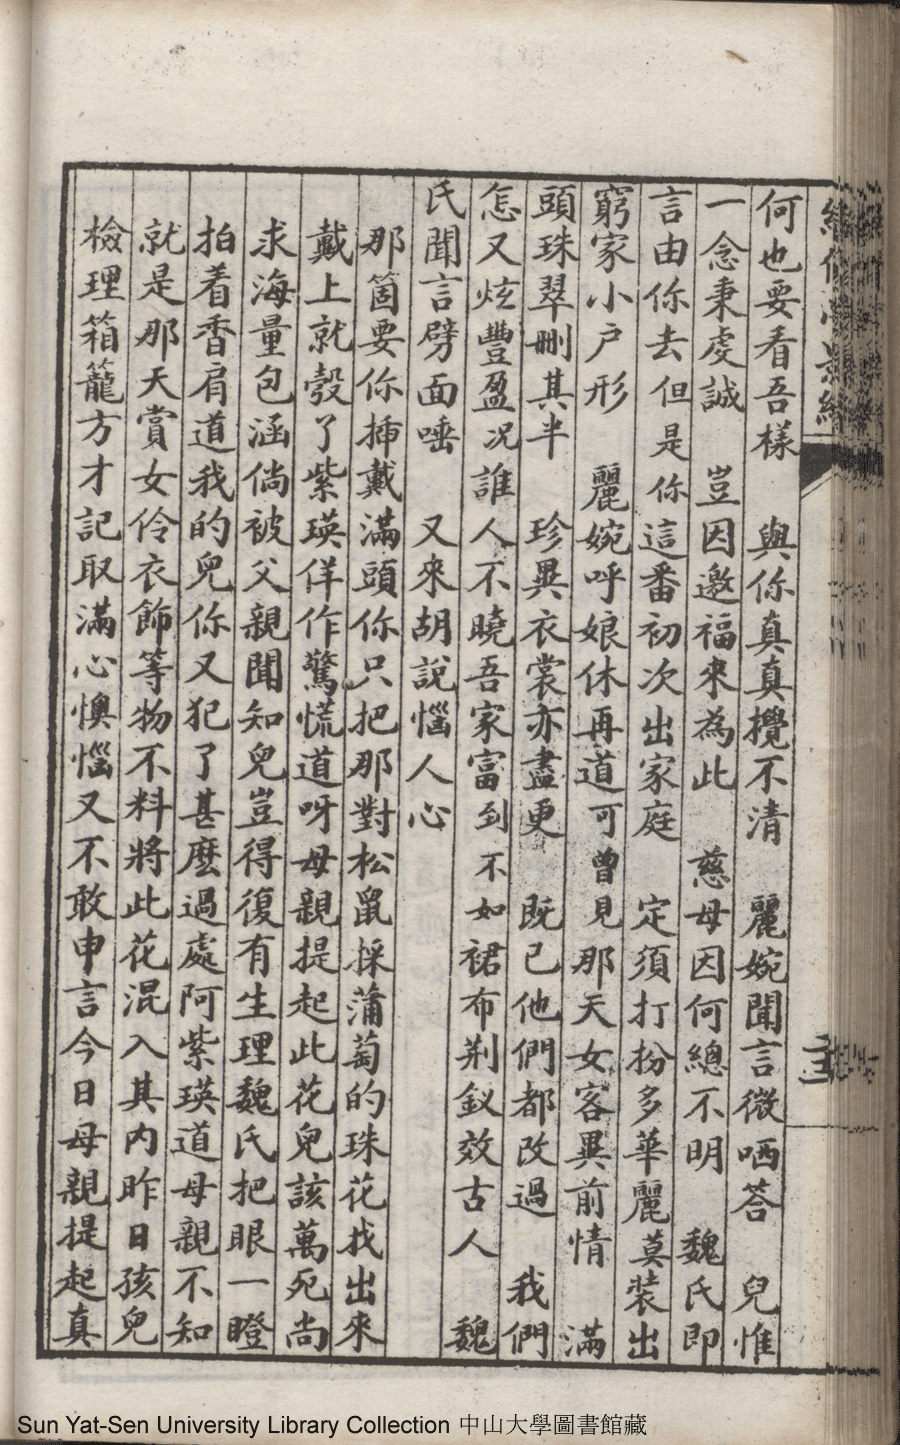 何也要看吾樣　與你真真攪不清　麗婉聞言微哂荅　兒惟
一念秉虔誠　豈因邀福來為此　慈母因何總不明　魏氏即
言由你去但是你這番初次出家庭　定須打扮多華麗莫裝出
窮家小户形　麗婉呼娘休再道可曾見那天女客異前情　滿
頭珠翠刪其半　珍異衣裳亦盡更　既已他們都改過　我們
怎又炫豐盈况誰人不曉吾家富到不如裙布荆釵效古人　魏
氏聞言劈面唾　又來胡說惱人心
那箇要你揷戴滿頭你只把那對松鼠採蒲萄的珠花找出來
戴上就彀了紫瑛佯作驚慌道呀母親提起此花兒該萬死尚
求海量包涵倘被父親聞知兒豈得復有生理魏氏把眼一瞪
拍着香肩道我的兒你又犯了甚麽過處阿紫瑛道母親不知
就是那天賞女伶衣飾等物不料將此花混入其内昨日孩兒
檢理箱籠方才記取滿心懊惱又不敢申言今日母親提起真
Sun Yat-Sen University Library Collection 中山大學圖書館藏